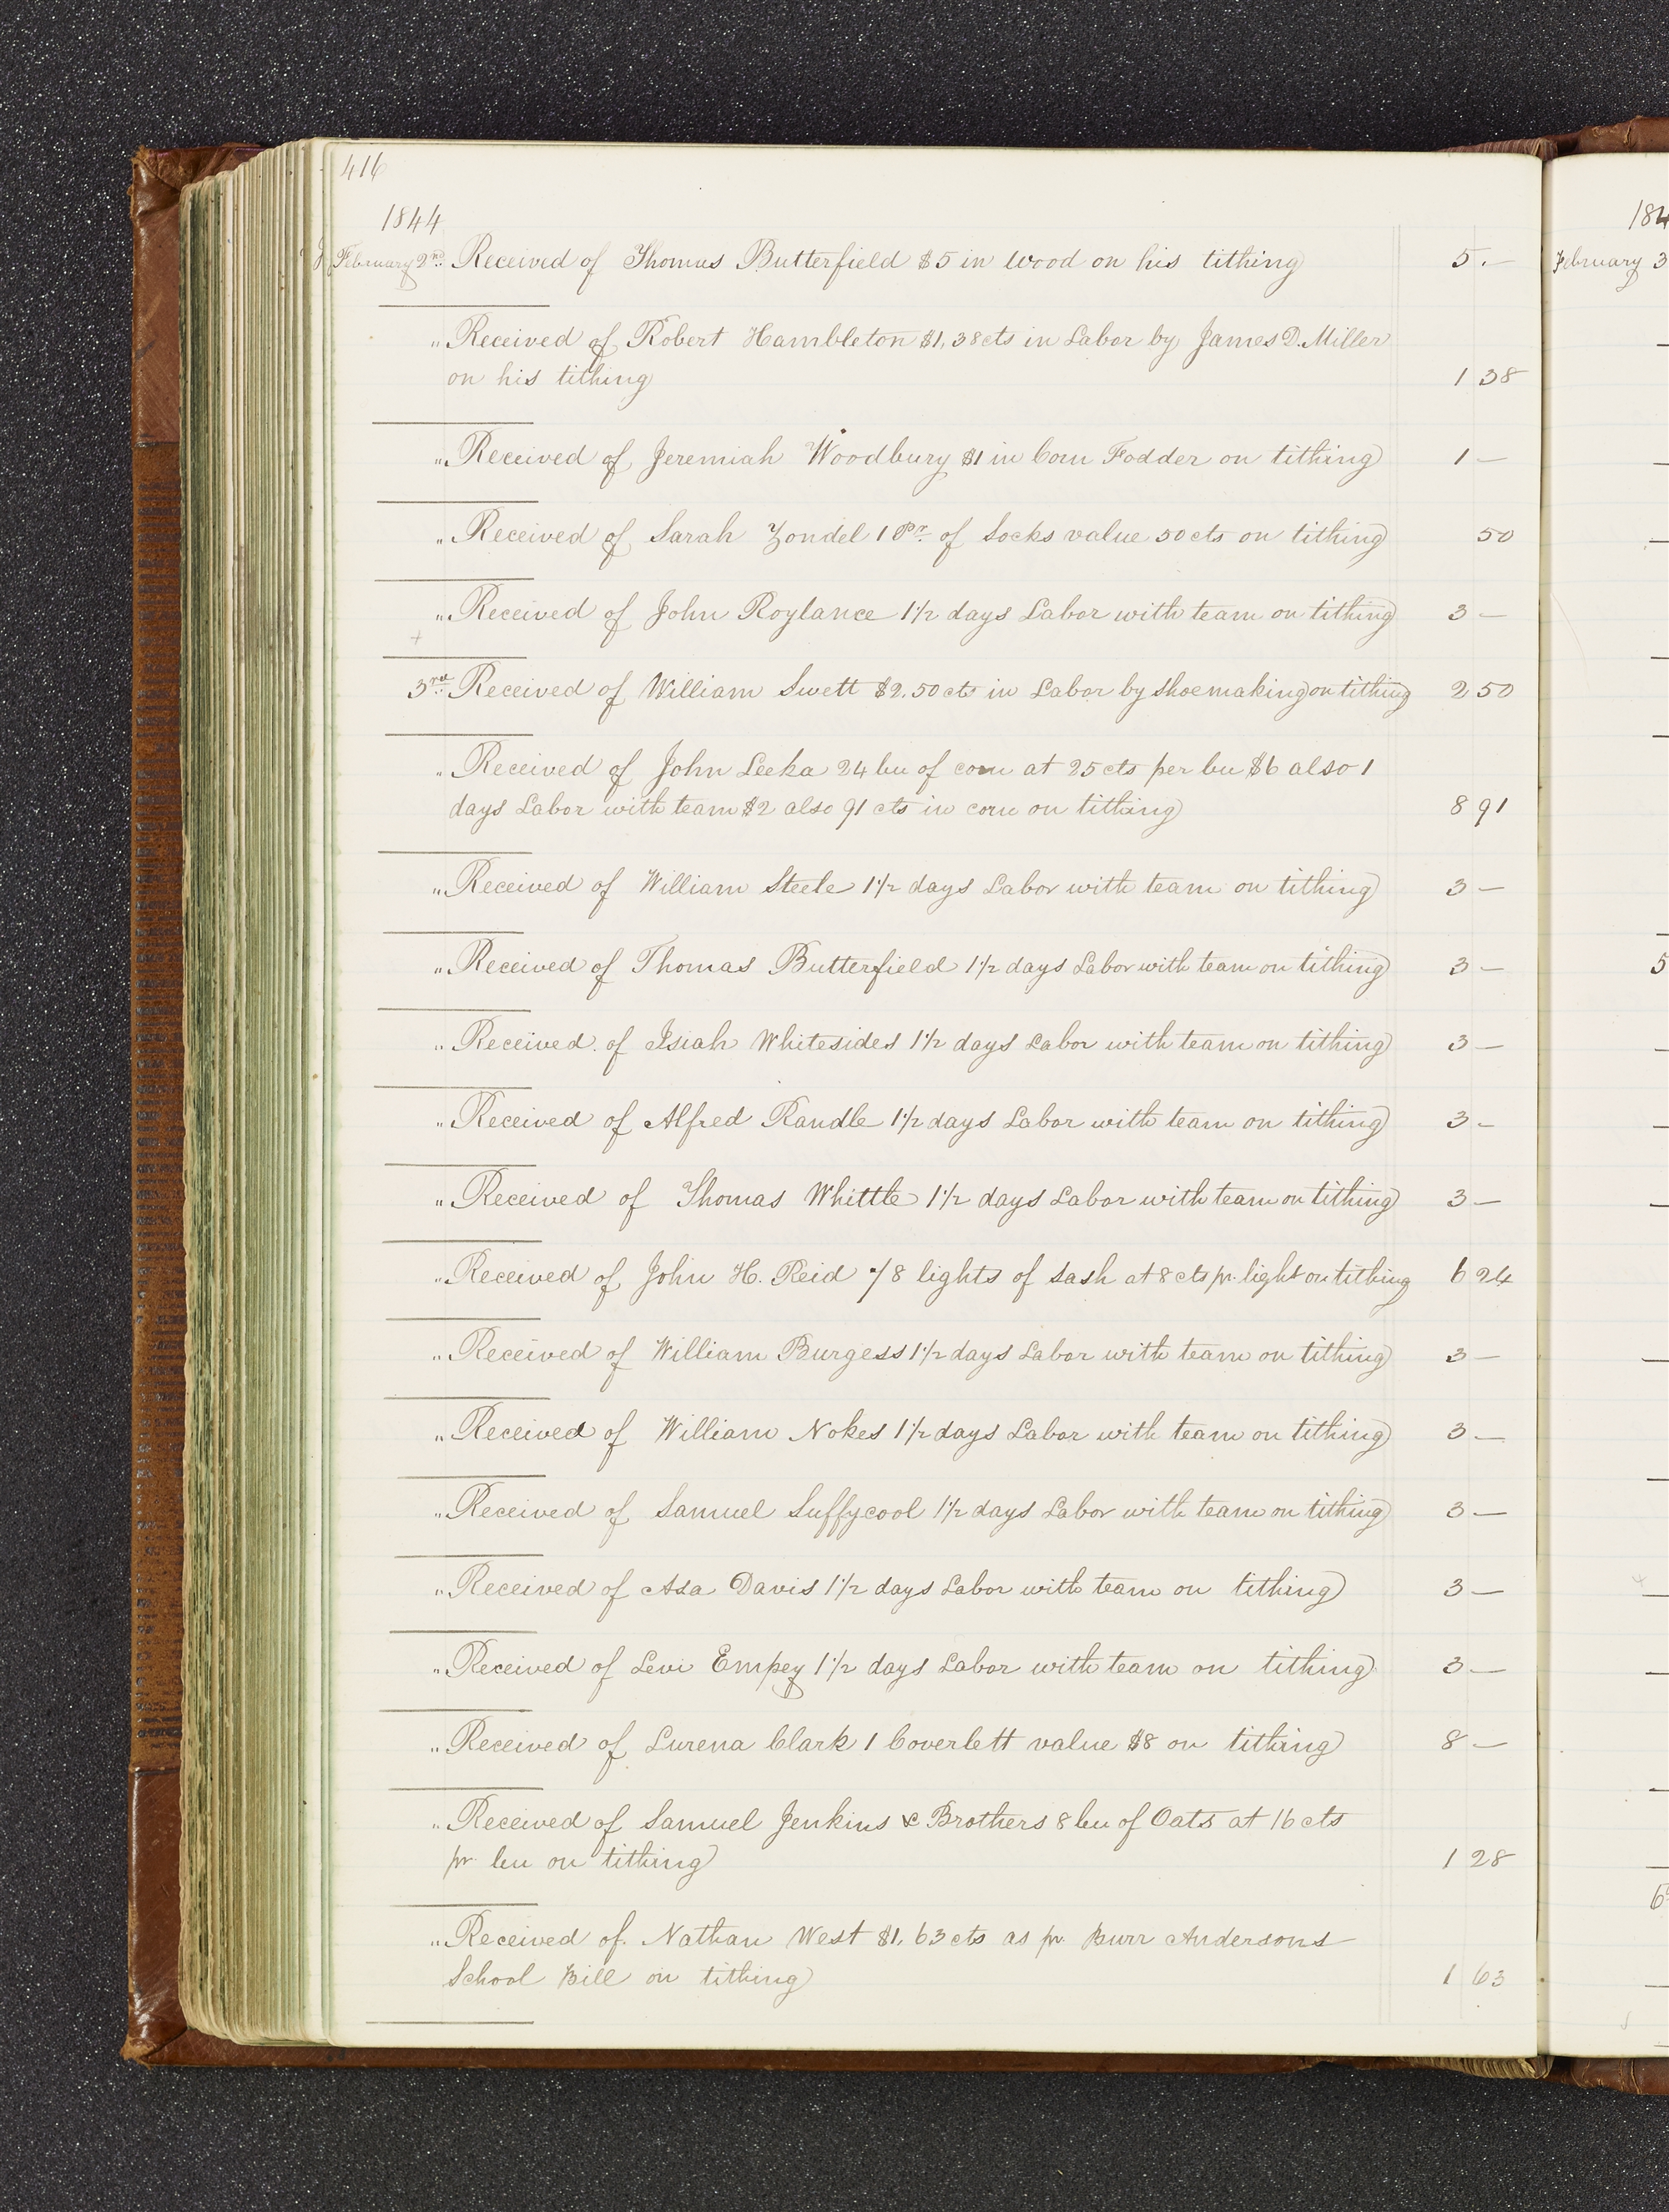 416
1844
February 2nd Received of Thomas Butterfield $5 in Wood on his tithing 5.—
" Received of Robert Hambleton $1,38cts in Labor by James D. Miller
on his tithing 1 38
" Received of Jeremiah Woodbury $1 in Corn Fodder on tithing 1 —
" Received of Sarah Zondel 1 Pr. of Socks value 50 cts on tithing 50
" Received of John Roylance 1 1/2 days Labor with team on tithing 3 —
+
3rd Received of William Swett $2.50cts in Labor by shoemaking on tithing 2 50
" Received of John Leeka 24 bu of corn at 25 cts per bu $6 also 1
days Labor with team $2 also 91 cts in corn on tithing 8 91
" Received of William Steele 1 1/2 days Labor with team on tithing 3 —
" Received of Thomas Butterfield 1 1/2 days Labor with team on tithing 3 —
" Received of Isiah Whitesides 1 1/2 days Labor with team on tithing 3 —
" Received of Alfred Randle 1 1/2 days Labor with team on tithing 3 —
" Received of Thomas Whittle 1 1/2 days Labor with team on tithing 3 —
" Received of John H. Reid 78 lights of sash at 8 cts pr. light on tithing 6 24
" Received of William Burgess 1 1/2 days Labor with team on tithing 3 —
" Received of William Nokes 1 1/2 days Labor with team on tithing 3 —
" Received of Samuel Suffycool 1 1/2 days Labor with team on tithing 3 —
" Received of Asa Davis 1 1/2 days Labor with team on tithing 3 —
" Received of Levi Empey 1 1/2 days Labor with team on tithing 3 —
" Received of Lurena Clark 1 Coverlett value $8 on tithing 8 —
" Received of Samuel Jenkins & Brothers 8 bu of Oats at 16 cts
pr bu on tithing 1 28
" Received of Nathan West $1,63 cts as pr. Burr Andersons
School Bill on tithing 1 63
184
February 3
5
6